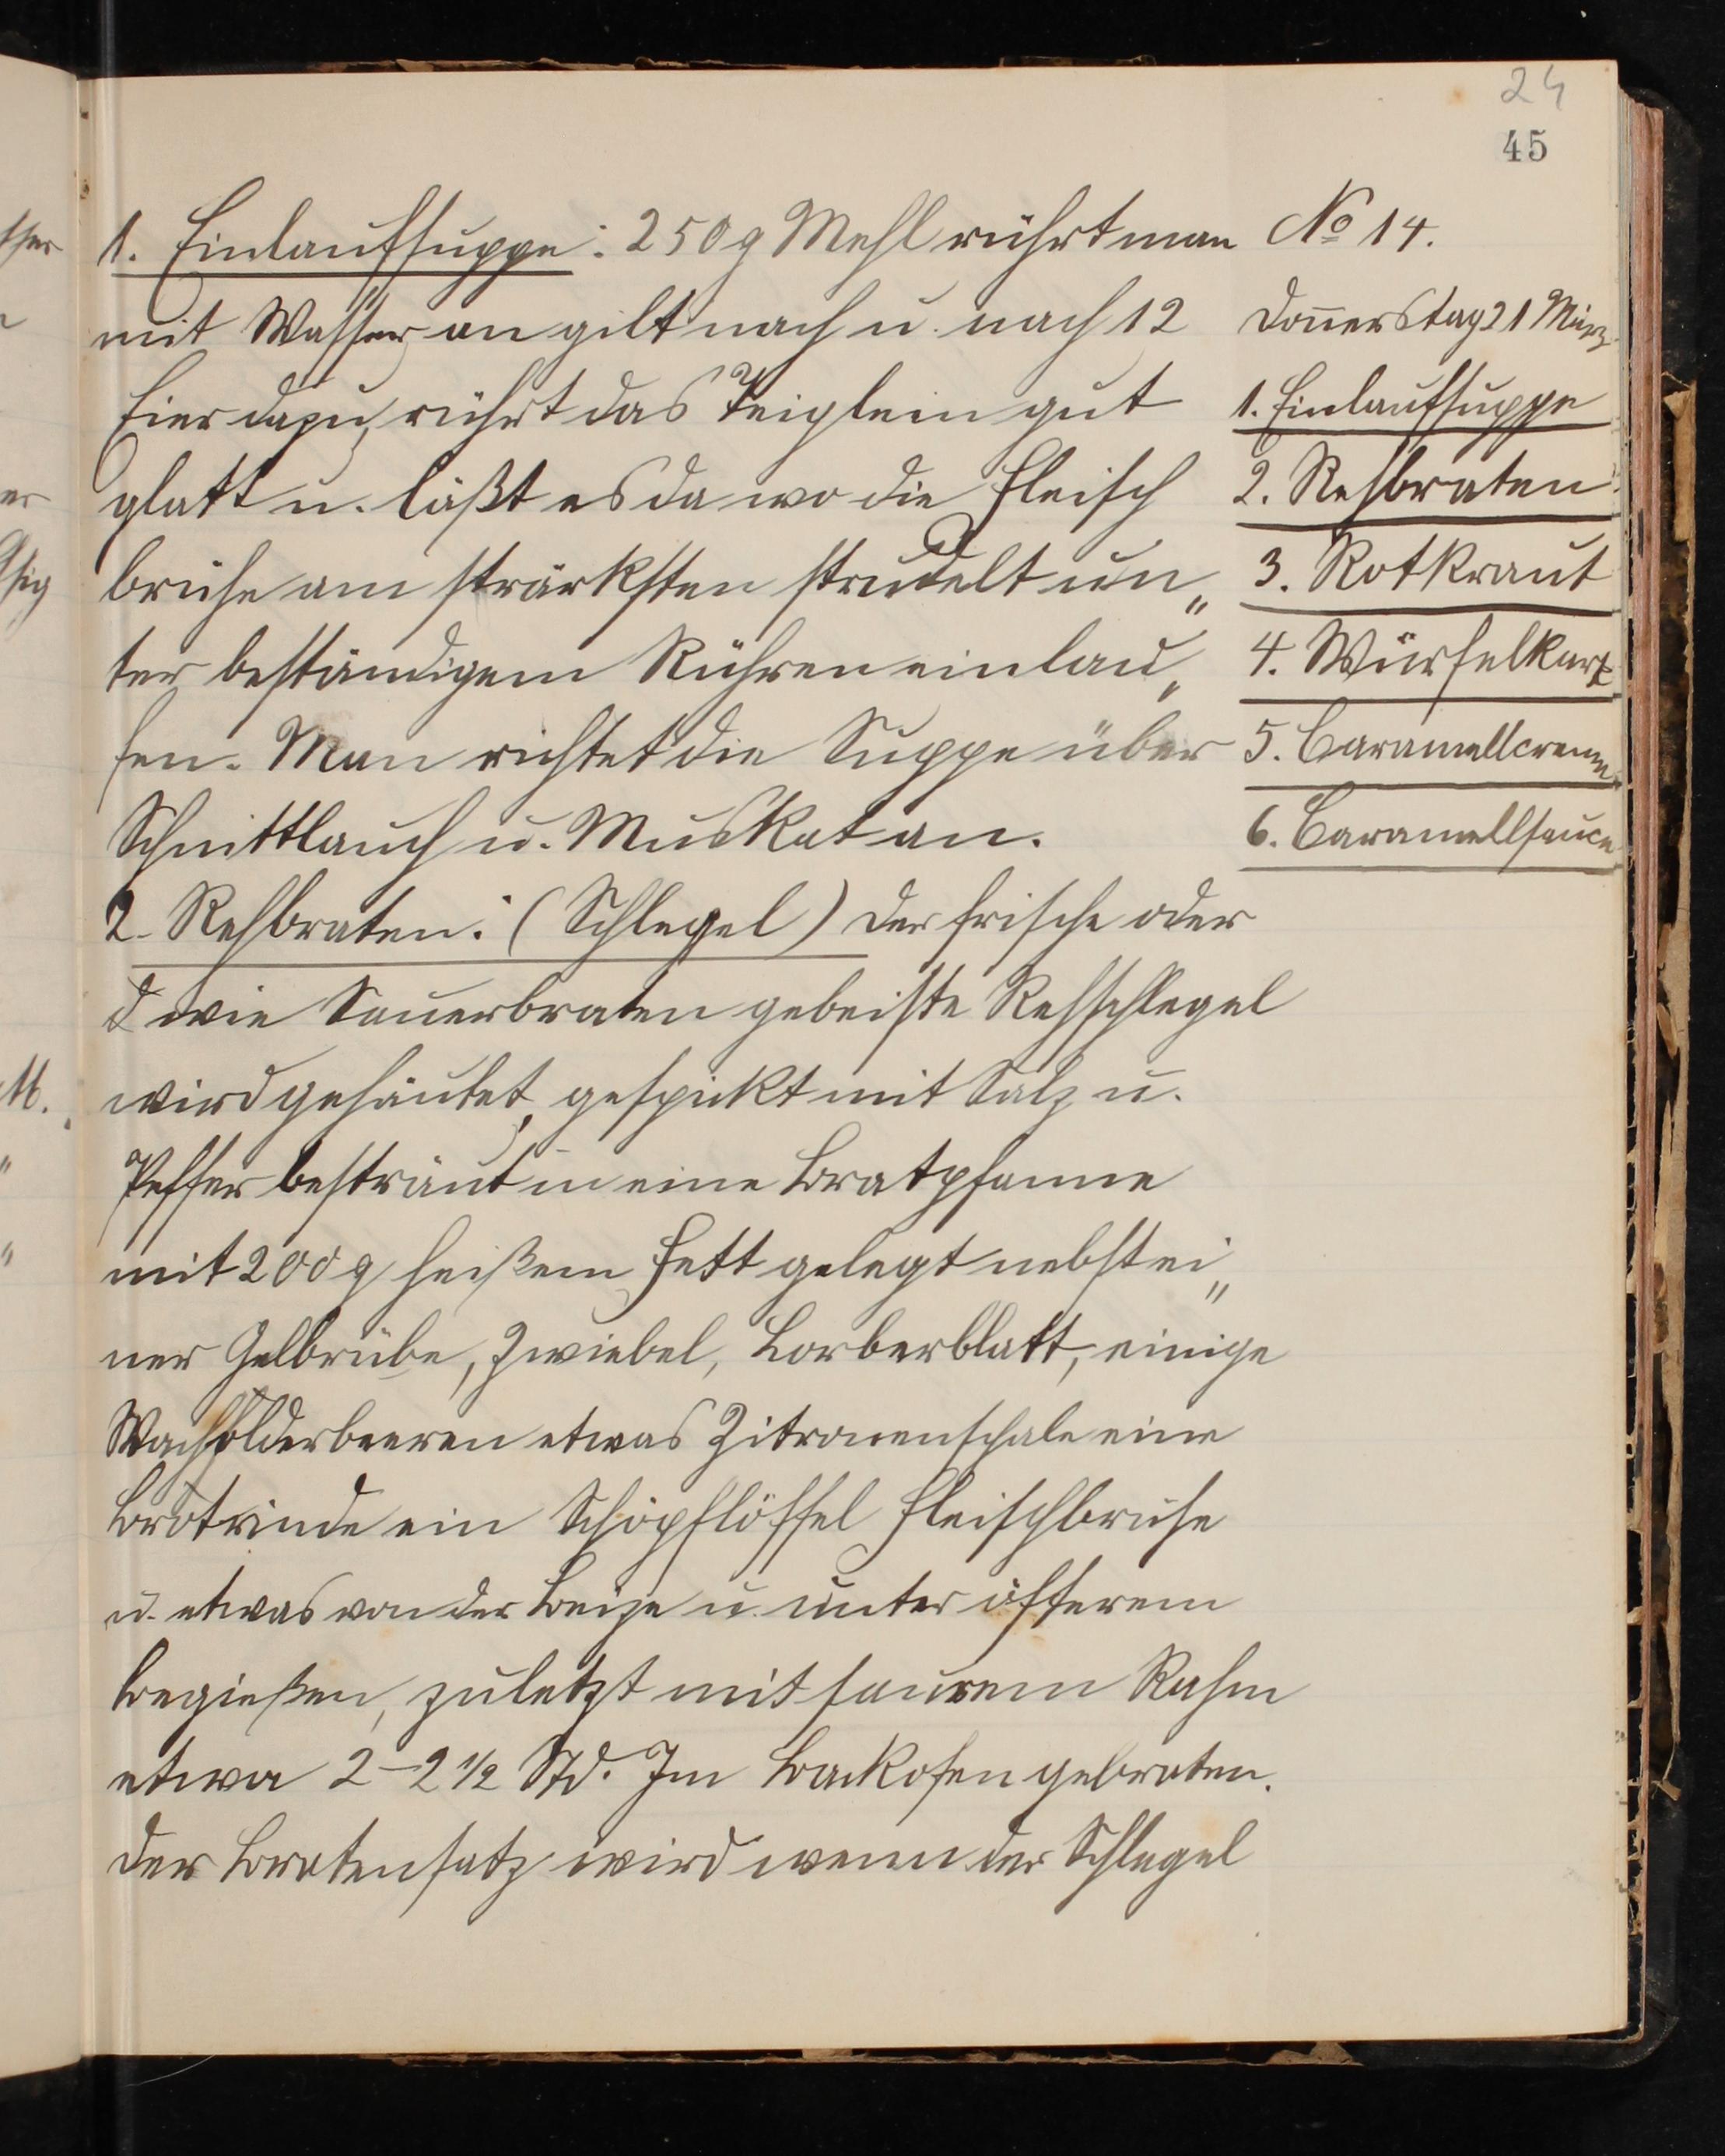 24
45
1. Einlaufsuppe: 250g Mehl rührt man
mit Wasser an gilt nach u. nach 12
Eier dazu, rührt das Teiglein gut
glatt u. läßt es da wo die Fleisch
brühe am strärksten strudelt un„
ter beständigem Rühren einlau„
fen. Man richtet die Suppe über
Schnittlauch u. Muskat an.
2. Rehbraten: (Schlegel) Der frische oder
d wie Sauerbraten gebeiste Rehschlegel
wird gehäutet, gespickt mit Salz u.
Peffer besträut in eine Bratpfanne
mit 200g heißem Fett gelegt nebst ei„
ner Gelbrübe, Zwiebel, Lorberblatt, einige
Wacholderbeeren etwas Zitronenschale eine
Brotrinde ein Schöpflöffel Fleischbrühe
u. etwas von der Beize u. unter öfterem
Begießen, zuletzt mit saurem Rahm
etwa 2-2 1/2 Std. Im Backofen gebraten.
Der Bratensatz wird wenn der Schlegel
No 14.
Donnerstag 21 März
1. Einlaufsuppe
2. Rehbraten
3. Rotkraut
4. Würfelkart
5. Caramellcreme
6. Caramellsauce